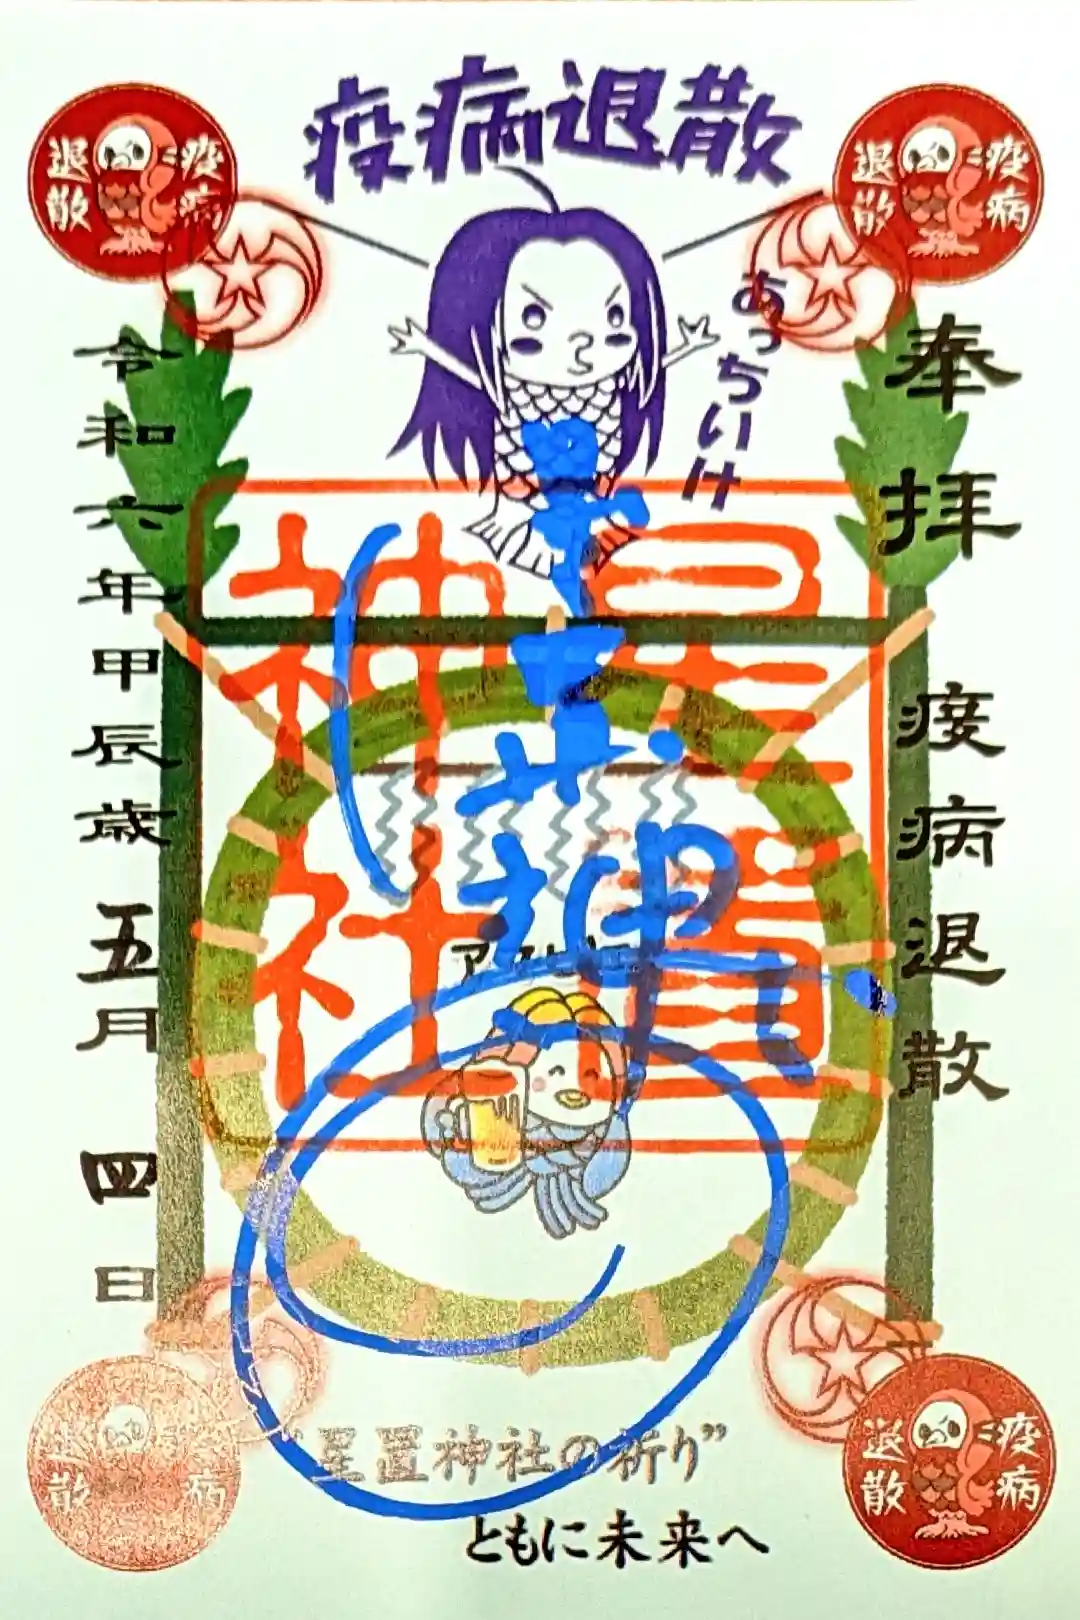 疫病退散
疫病
退散
疫病
退散
あっちいけ
奉拝
疫病退散
令和六年甲辰歳五月四日
星置
神社
疫病
退散
疫病
退散
“星置神社の祈り”
ともに未来へ